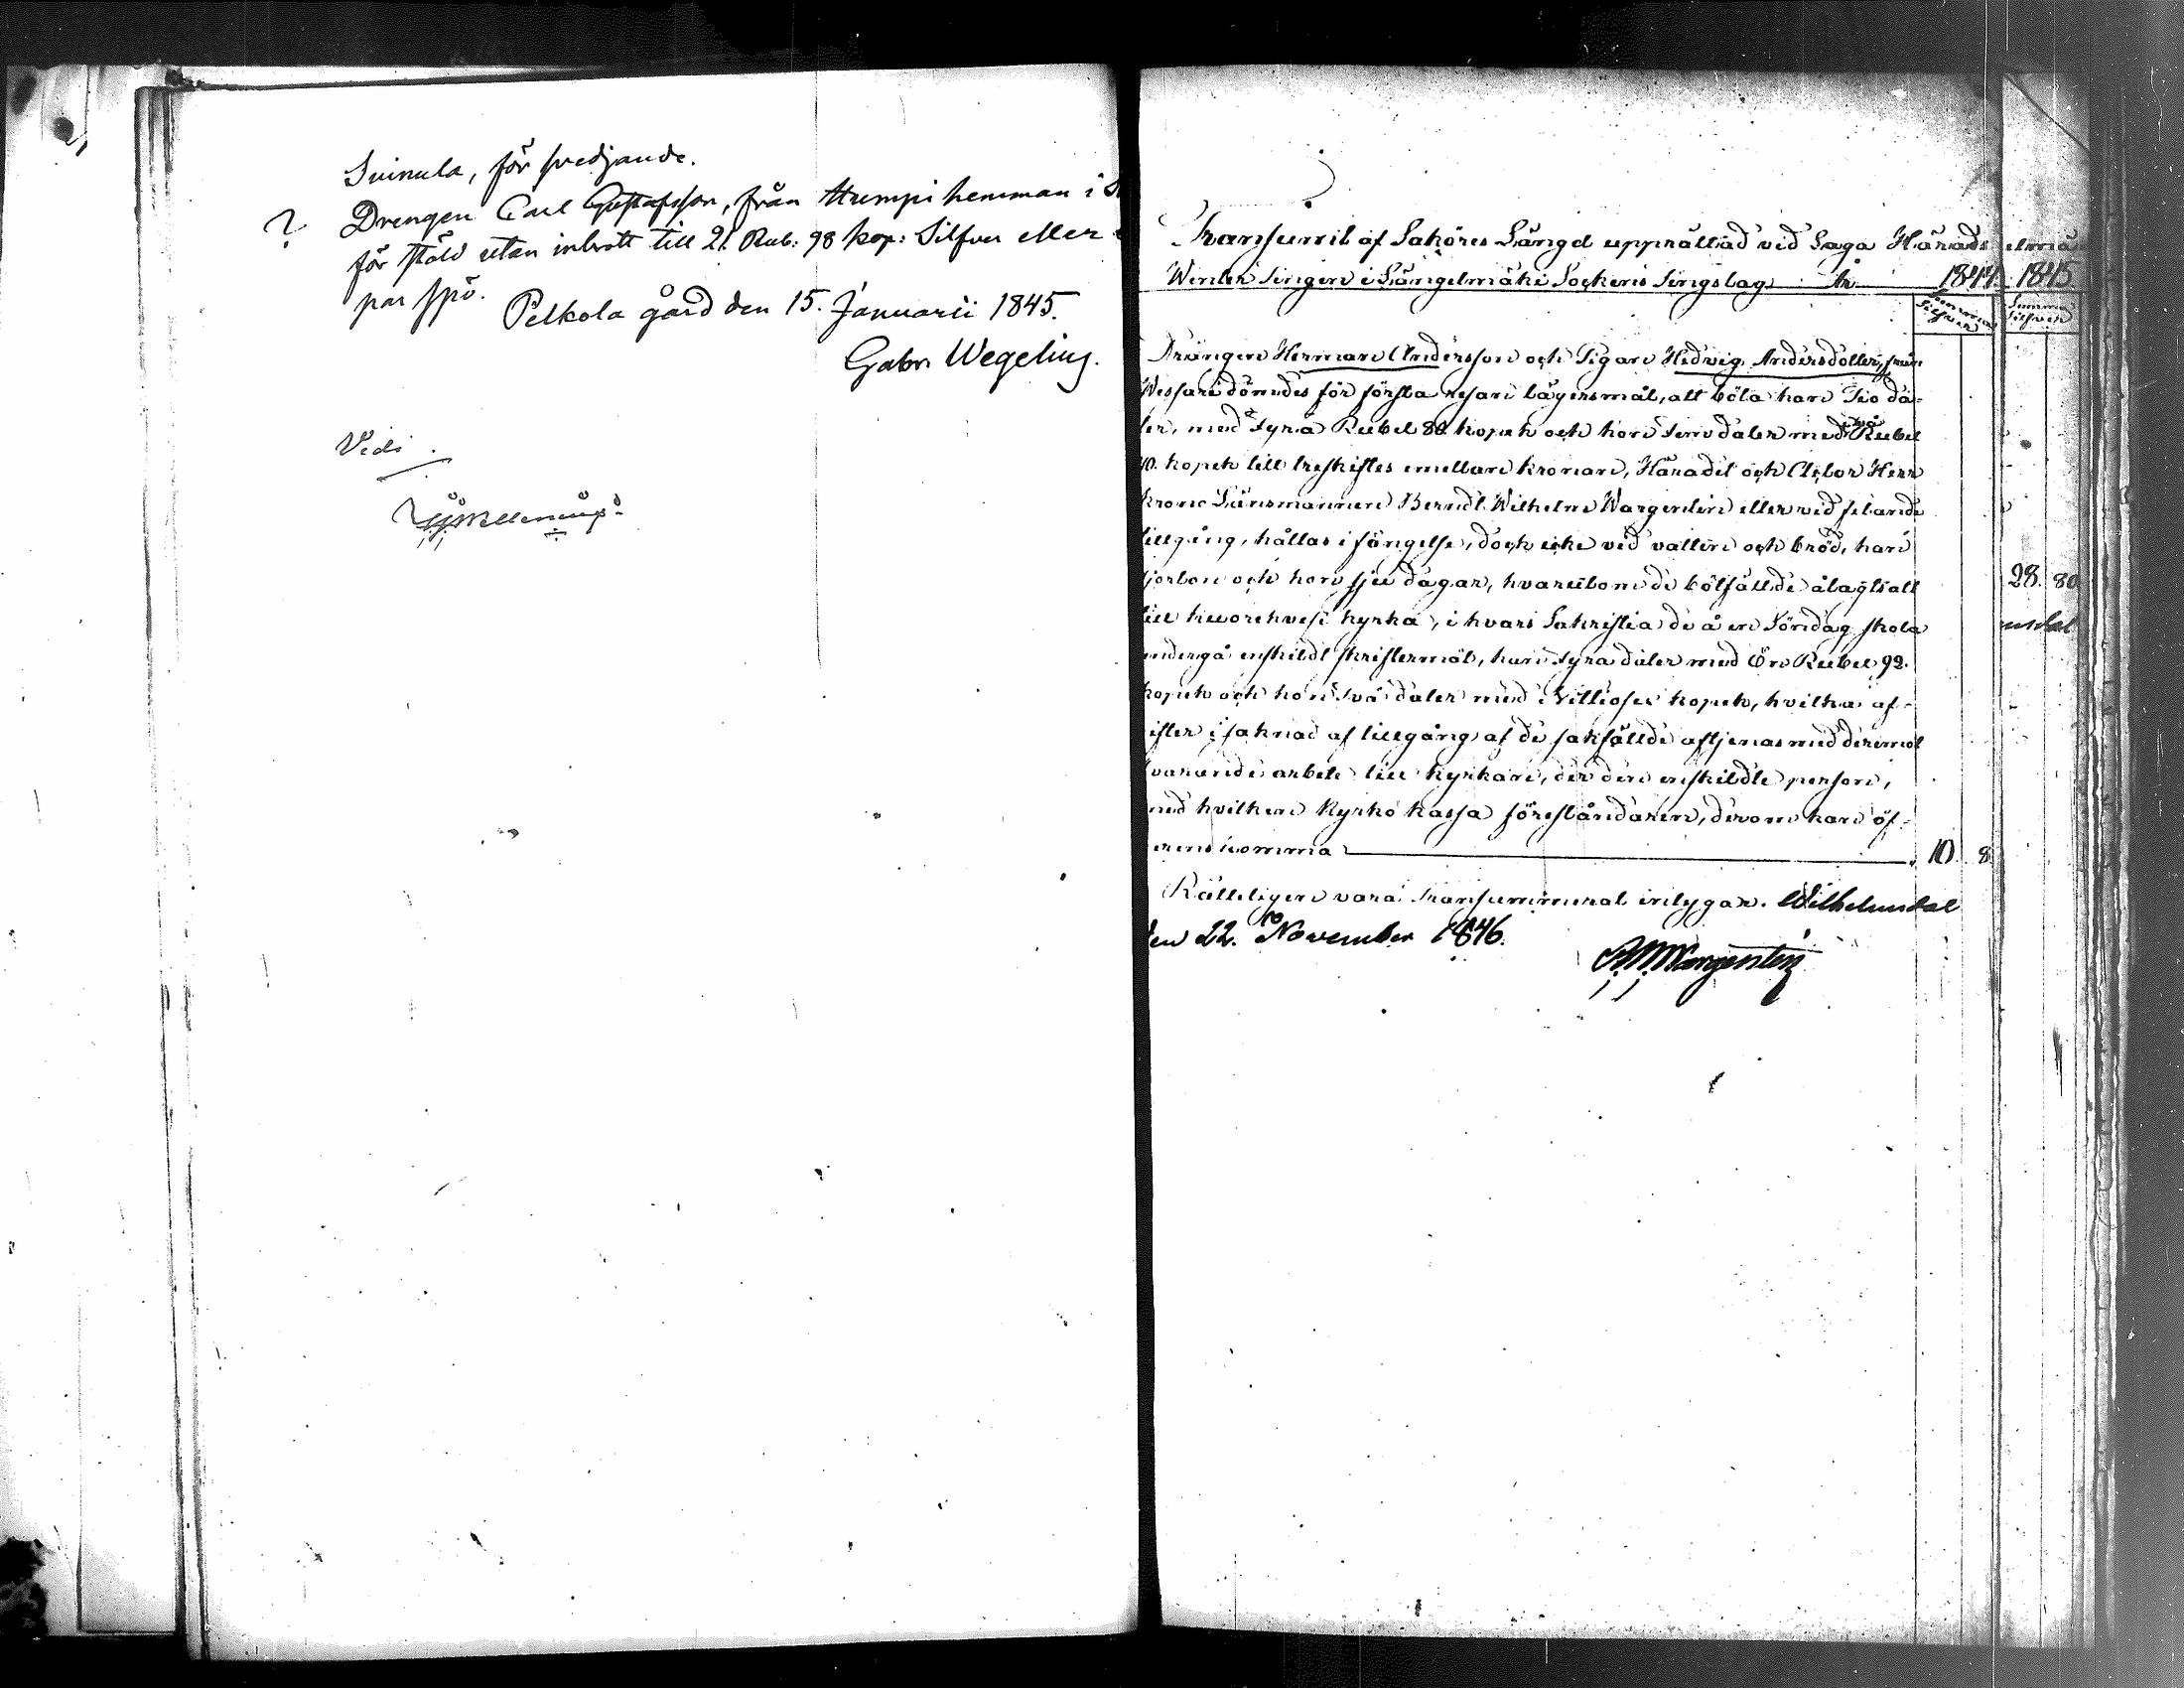 Suinula, för svedjande.
? Drengen Carl Gustafsson, från Strumpi hemman i
för stöld utan inbrott till 21. Rub: 98 kop: Silfver eller
par spö.
Pelkola gård den 15. Januarii 1845.
Gabr. Wegelius.
Vidi.
Transumt af Saköres Längd upprättad vid Laga Härads
Winter Tingen i Längelmäki Sockens Tingslag År 1844. 1845
Summa Silfver Summa Silfver
Drängen Herman Andersson och Pigan Hedvig Andersdotter, från
Wessari dömdes för första resan lägersmål, att böta han Tio da-
ler, med fyra Rubel 80 kopek och hon fem daler med två Rubel
40. kopek till treskiftes emellan kronan, Häradet och Actor Herr
Krono Länsmannen Berndt Wilhelm Wargentin eller vid felande
tillgång, hållas i fängelse, dock icke vid vatten och bröd, han
fjorton och hon sju dagar, hvarutom de bötfällde ålagts att
till Kuorehvesi kyrka, i hvars Sakristia de å en Söndag skola
undergå enskildt skriftermål, han fyra daler med En Rubel 92.
kopek och hon två daler med Nittiosex kopek, hvilka af-
gifter i saknad af tillgång af de sakfällde aftjenas med deremot
svarande arbete till kyrkan, der den enskildte person,
med hvilken Kyrko kassa föreståndaren, derom kan öf-
verenskomma 10. 8
28. 80
Rätteligen vara transumerat intygar. Wilhelmsdal
den 22. November 1846.
BWWargentin